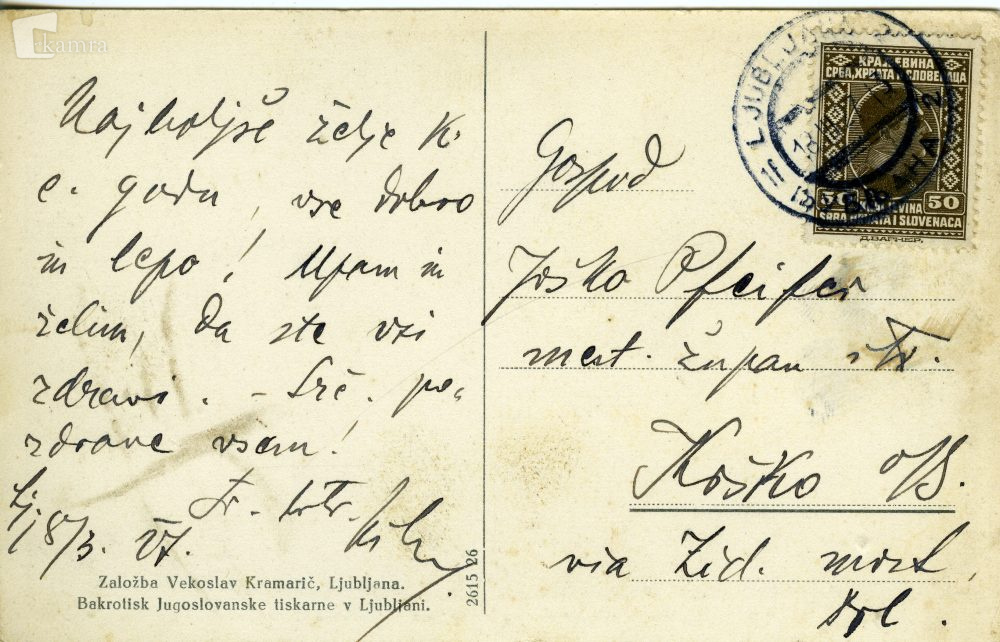 kamra
Najboljše želje k
c. godu, vse dobro
in lepo! Upam in
želim, da ste vsi
zdravi. – Srč. po=
zdrave vsem!
Lj, 18/3. 27.
Založba Vekoslav Kramarič, Ljubljana.
Bakrotisk Jugoslovanske tiskarne v Ljubljani.
2615 26
LJUBLJANA 2
КРАЉЕВИНА
СРБА, ХРВАТА И СЛОВЕНАЦА
50
KRALJEVINA
SRBA HRVATA I SLOVENACA
Gospod
Joško Pfeifer
mest. župan itr.
Krško o/S.
via Zid. most,